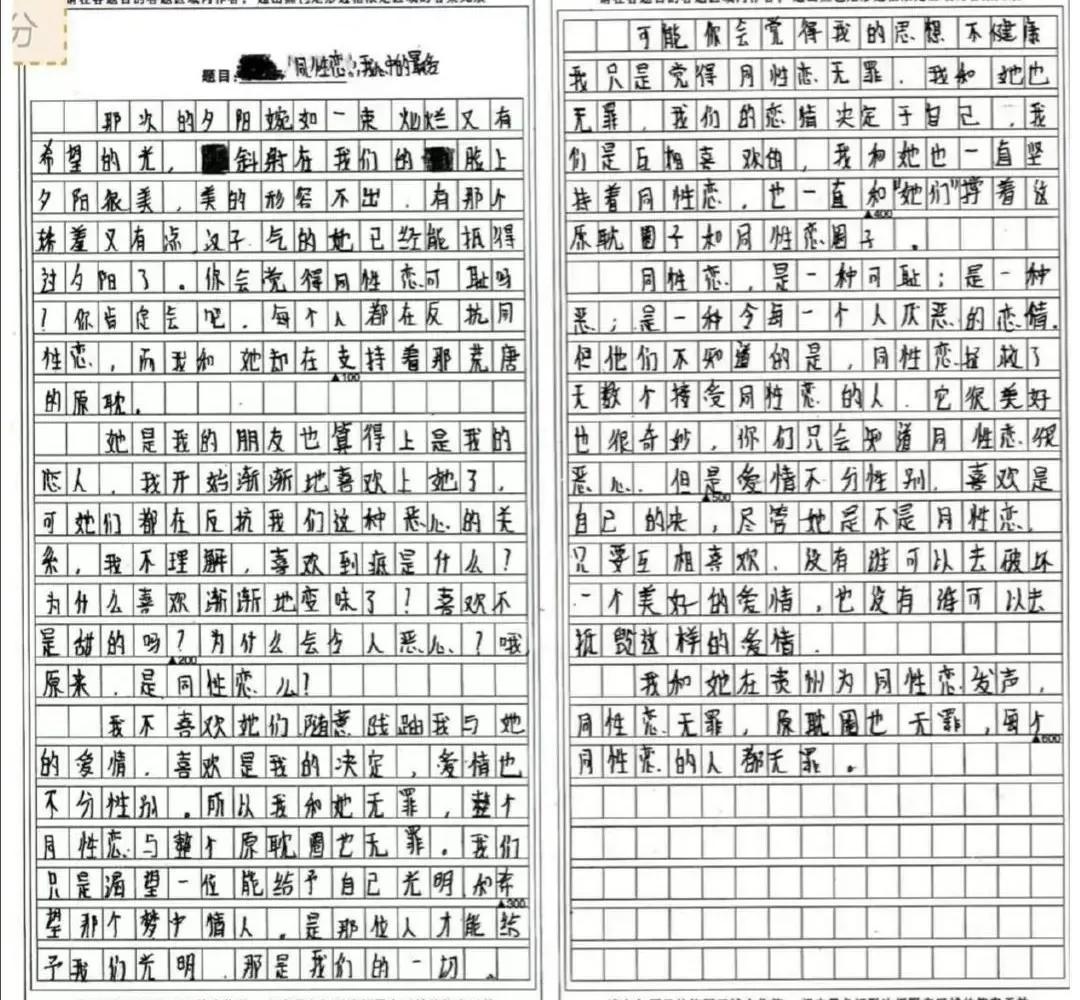 分
题目: "同性恋"我心中的最爱
那次的夕阳婉如一束灿烂又有
希望的光,斜射在我们的脸上
夕阳很美,美的形容不出,有那个
羞又有点汉子气的她已经能抵得
过夕阳了。你会觉得同性恋可耻吗
?你肯定会吧,每个人都在反抗同
性恋,而我和她却在支持着那荒唐
▲100
的原耽。
她是我的朋友也算得上是我的
恋人,我开始渐渐地喜欢上她了,
可她们都在反抗我们这种恶心的关
系,我不理解,喜欢到底是什么?
为什么喜欢渐渐地变味了?喜欢不
是甜的吗?为什么会令人恶心?哦
▲200
原来,是同性恋么?
我不喜欢她们随意践踏我与她
的爱情,喜欢是我的决定,爱情也
不分性别。所以我和她无罪,整个
同性恋与整个原耽圈也无罪。我们
只是渴望一位能给予自己光明和希
▲300
望那个梦中情人。是那位人才能给
予我们光明,那是我们的一切。
可能你会觉得我的思想不健康
我只是觉得同性恋无罪,我和她也
无罪,我们的恋情决定于自己,我
们是互相喜欢的,我和她也一直坚
持着同性恋,也一直和"她们"撑着这
▲400
原耽圈子和同性恋圈子。
同性恋,是一种可耻;是一种
恶;是一种令每一个人厌恶的恋情。
但他们不知道的是,同性恋拯救了
无数个接受同性恋的人,它很美好
也很奇妙,你们只会知道同性恋很
恶心,但是爱情不分性别,喜欢是
▲500
自己的决,尽管她是不是同性恋,
只要互相喜欢,没有谁可以去破坏
一个美好的爱情,也没有谁可以去
诋毁这样的爱情.
我和她在贵州为同性恋发声,
同性恋无罪,原耽圈也无罪,每个
▲600
同性恋的人都无罪。